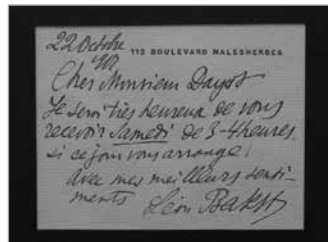 22 Octobre
112 BOULEVARD MALESHERBES
Cher Monsieur Dayot
Je serai très heureux de vous
recevoir Samedi de 3-4 heures.
si ce jour vous arrange.
Avec mes meilleurs senti-
ments Léon Bakst